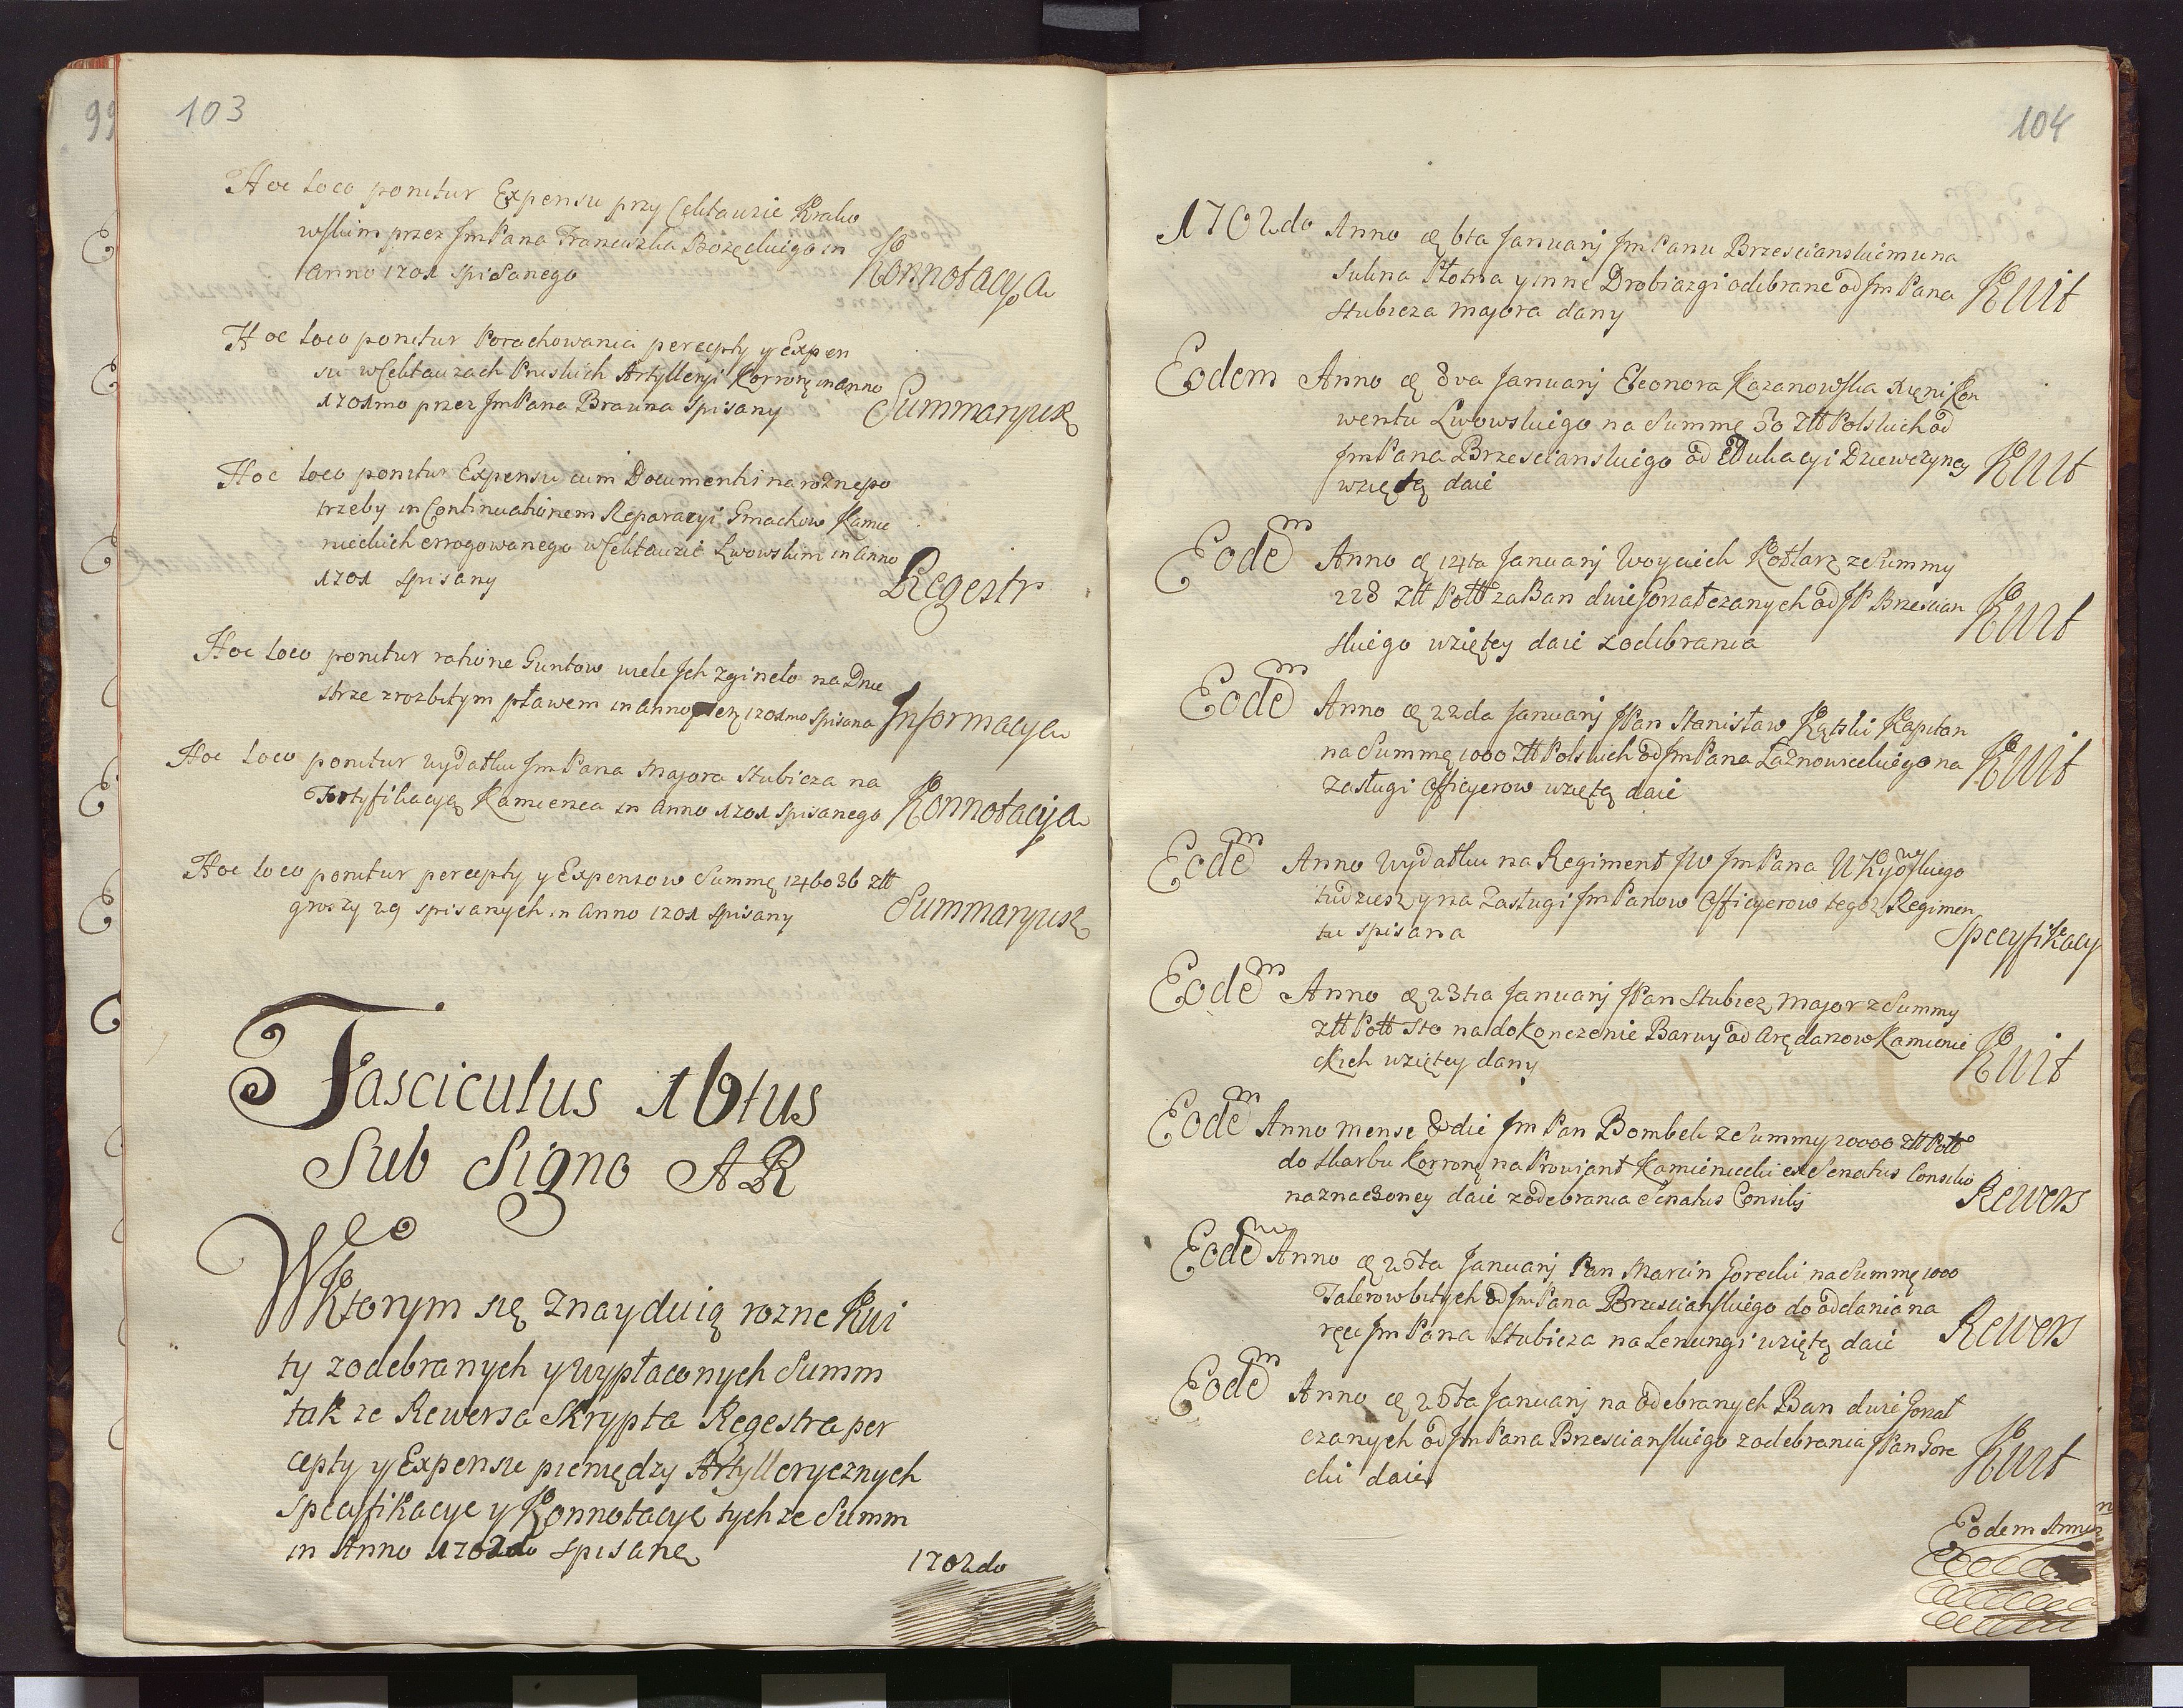 99
103
Hoc loco ponitur Expensu przy Cekhauzie Krako
wskim przez Jm Pana Franciszka Bozęckiego in
Anno 1701 spisanego Konnotacya
Hoc loco ponitur Porachowania percepty y Expen
su w Cekhauzach Pruskich Artylleryi Korroney in anno
1701mo przez Jm Pana Brauna spisany Summaryusz
Hoc loco ponitur Expensu cum Documentis na rozne po
trzeby in Continuationem Reparacyi Gmachow Kamie
nieckich errogowanego w Cekhauzie Lwowskim in anno
1701 spisany Regestr
Hoc loco ponitur ratione Guntow wiele Jch zgineło na Dnie
strze z rozbitym pławem in anno 1701mo spisana Informacya
Hoc loco ponitur wydatku Jm Pana Majora Stubicza na
Fortyfikacyą Kamienca in Anno 1701 spisanego Konnotacya
Hoc loco ponitur percepty y Expensow Summę 146036 złł
groszy 29 spisanych in anno 1701 spisany Summaryusz
Fasciculus 16tus
Sub Signo AR
W Ktorym się znayduią rozne Kwi
ty z odebranych y wypłaconych Summ
tak ze Rewersa Skrypta Regestra per
cepty y Expensu pieniędzy Artyllerycznych
specyfikacye y Konnotacye tych ze Summ
in Anno 1702do spisane
1702do
104
1702do Anno et 6ta Januarij Jm Panu Brzescianskiemu na
Sukna Płotna y inne Drobiazgi odebrane od Jm Pana
Stubicza Majora dany Kwit
Eodem Anno et 8va Januarij Eleonora Kazanowska Xieni Kon
wentu Lwowskiego na Summę 30 Złł Polskich od
Jm Pana Brzescianskiego od Edukacyi Dziewczyney
wziętą daie Kwit
Eodem Anno et 14ta Januarij Woyciech Kotlarz ze Summy
228 Złł Polł za Ban dwie Gorzałczanych od JP Brzescian
skiego wziętey daie z odebrania Kwit
Eodem Anno et 22da Januarij JPan Stanisław Kątski Kapitan
na Summę 1000 Złł Polskich od Jm Pana Łaznowieckiego na
Zasługi Officyerow wziętą daie Kwit
Eodem Anno Wydatku na Regiment JW Jm Pana WKijowskiego
tudziesz y na Zasługi Jm Panow Officyerow tegoż Regimen
tu spisana Specyfikacy
Eodem Anno et 23tia Januarij JPan Stubicz Major z Summy
złł Polł sto na dokonczenie Barwy od Arędarzow Kamienie
ckich wziętey dany Kwit
Eodem Anno mense et die Jm Pan Bombek z Summy 20000 złł Polł
do skarbu Korronę na Prowiant Kamieniecki ex Senatus Consilio
naznaczoney daie z odebrania Senatus Consilij Rewers
Eodem Anno et 25ta Januarij Pan Marcin Gorecki na Summę 1000
Talerow bitych od Jm Pana Brzescianskiego do oddania na
ręce Jm Pana Stubicza na Lenungi wziętą daie Rewers
Eodem Anno et 25ta Januarij na odebranych Ban dwie Gorzał
czanych od Jm Pana Brzescianskiego z odebrania JPan Gore
cki daie Kwit
Eodem Anno